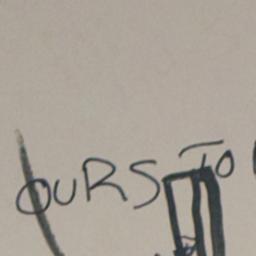 OURS TO